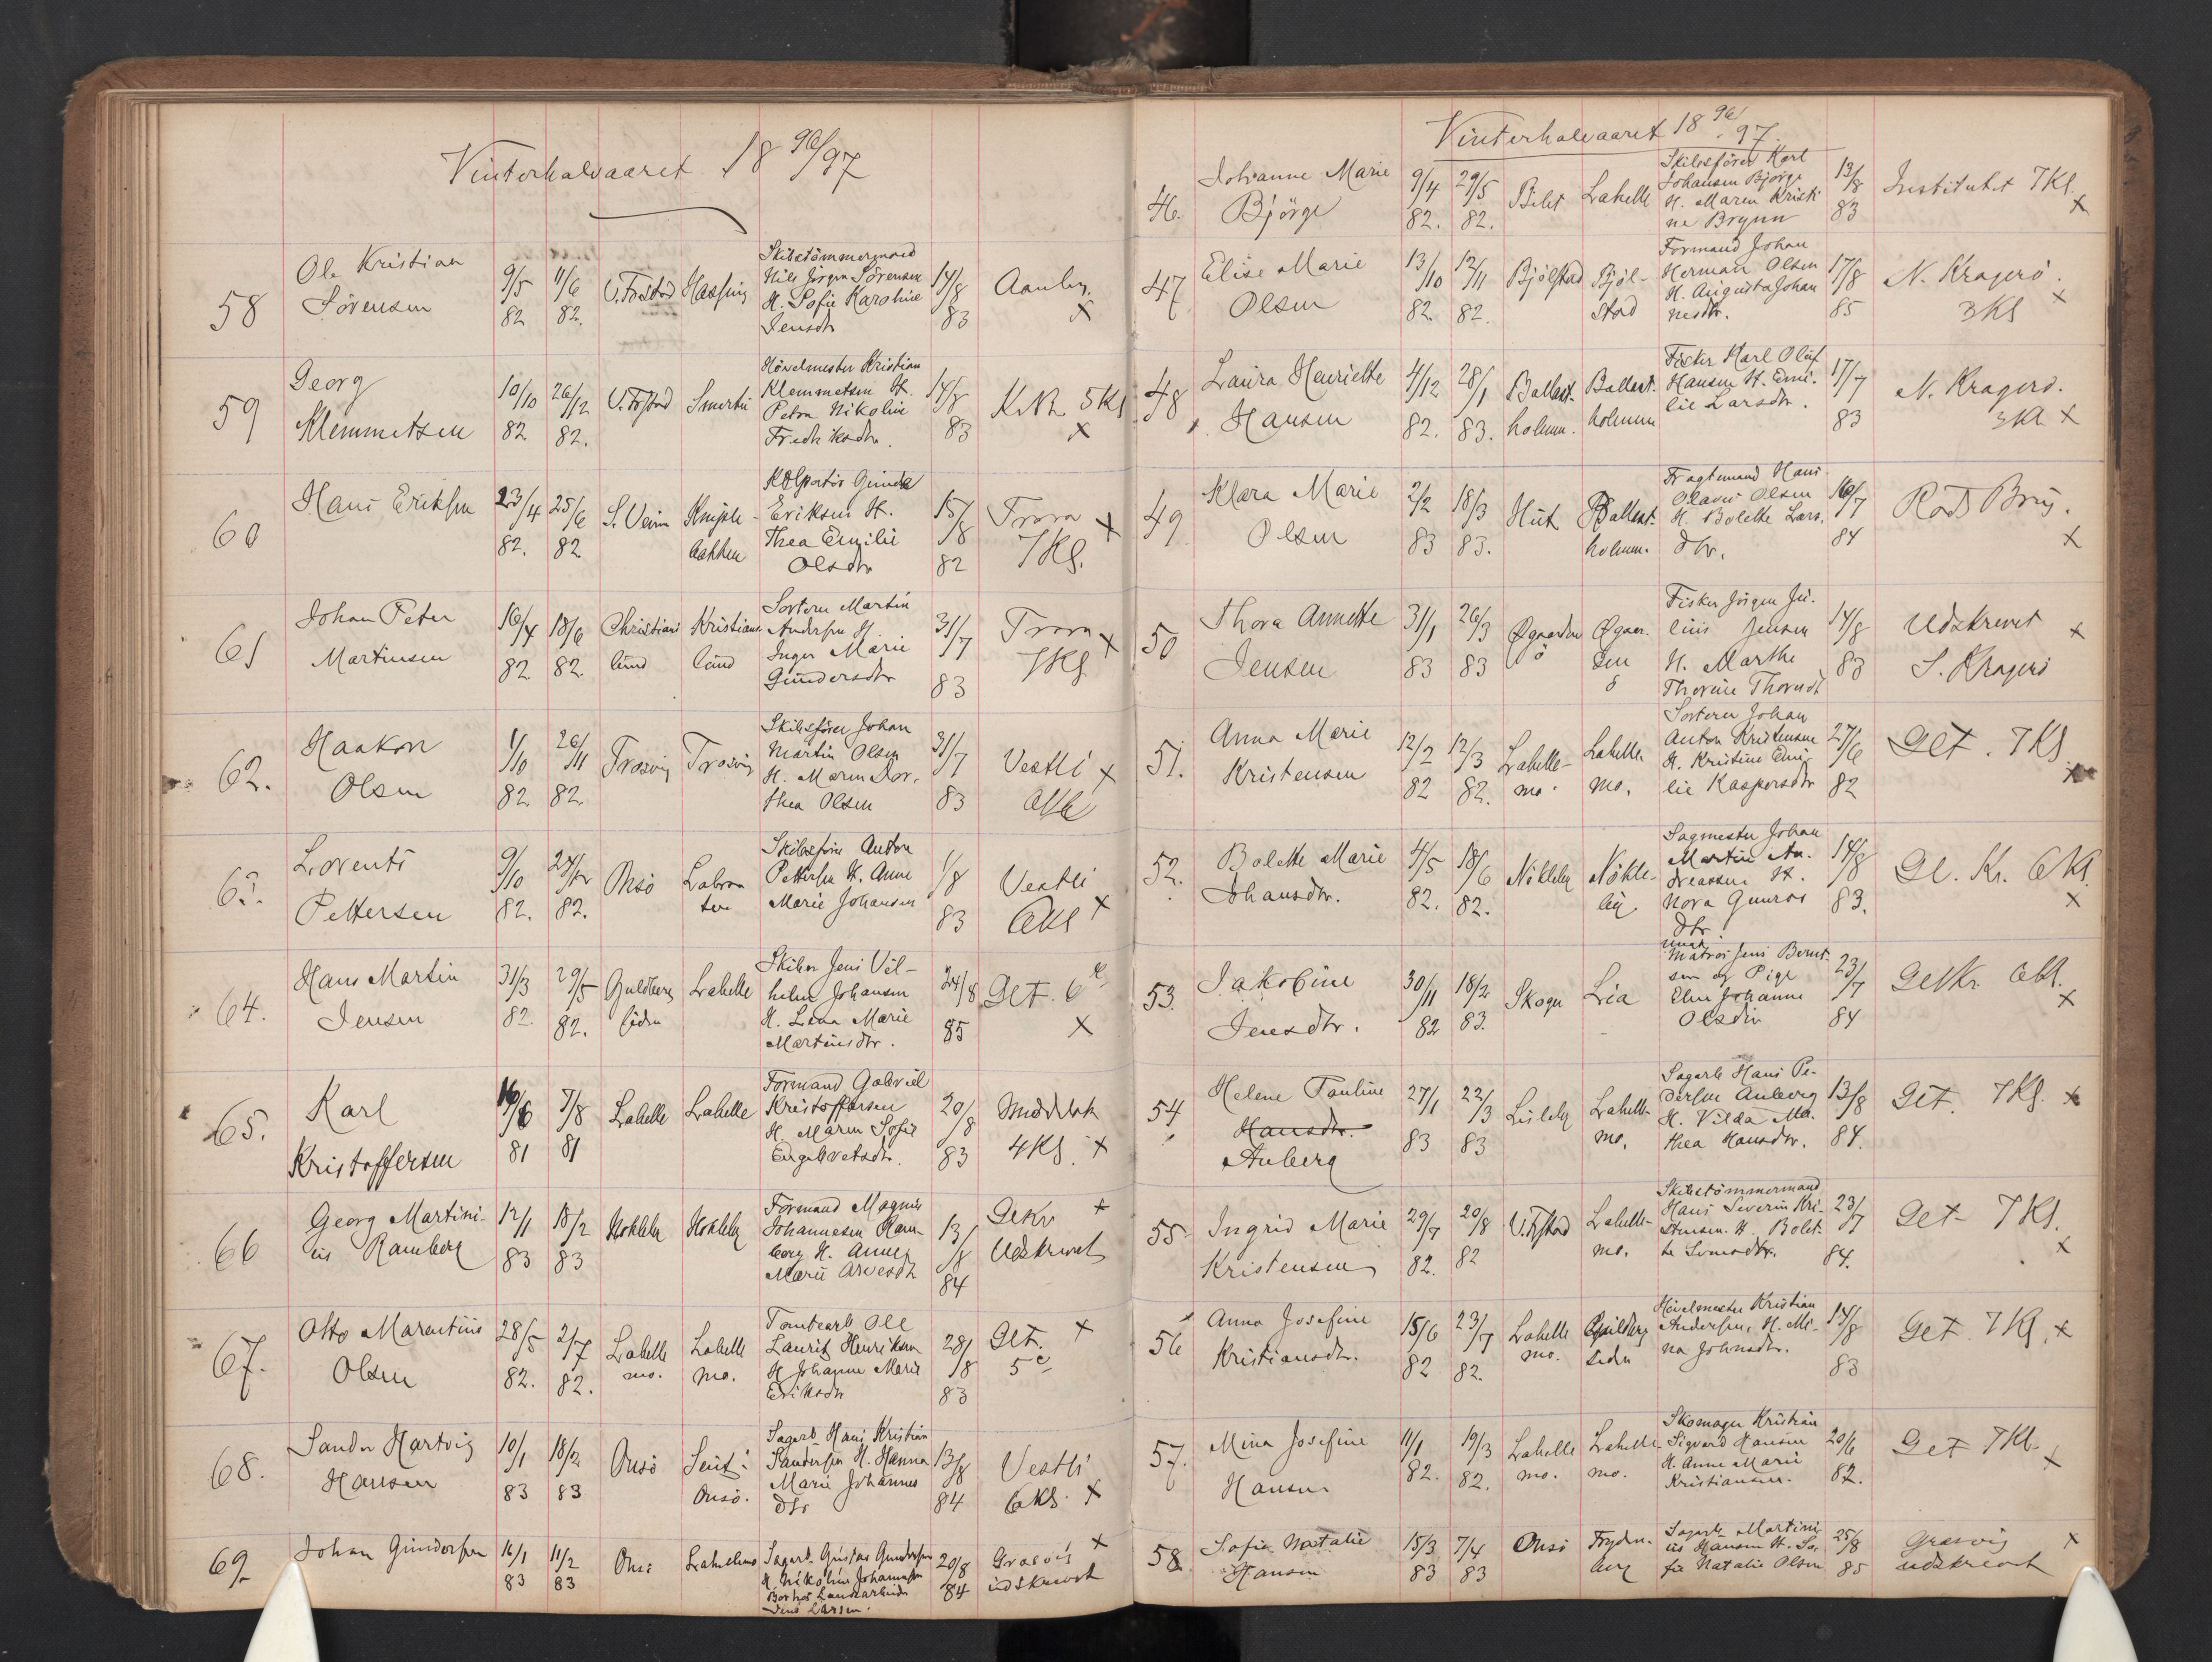 Vinterhalvaaret 18 96/97
58
Ole Kristian
Sörensen
9/5
82
11/6
82.
V. Fosstad
Skibstömmermand
Nils Jörgen Sörensen
H. Sofie Karoline
Jensdtr
14/8
83
Aanby
x
59
Georg
Klemmetsen
10/10
82
26/12
82.
Hövelmester Kristian
Klemmetsen H.
Petra Nikoline
Fredriksdtr.
14/8
83
5Kl
x
60
Hans Eriksen
23/4
82.
25/6
82
Eriksen H.
Thea Emilie
Olsdtr
15/8
82
Trara x
7Kl.
61
Johan Peter
Martinsen
16/4
82
18/6
82
Christians
lund
Kristians
lund
Martin
Andersen H.
Inger Marie
Gundersdtr
31/7
83
Trara x
7Kl
62.
Haakon
Olsen
1/10
82
26/11
82.
Trosvig
Trosvig
Skibsförer Johan
Martin Olsen
H. Maren Dor.
thea Olsen
31/7
83
Vestli x
63.
Lorents
Pettersen
9/10
82.
82.
Onsö
Skibsförer Anton
Pettersen H. Anne
Marie Johansen
1/8
83
Vestli
6Kl x
64.
Hans Martin
Jensen
31/3
82.
29/5
82.
Guldberg
siden
Labelle
Jens Vil-
helm Johansen
H. Lena Marie
Martinsdtr.
24/8
85
Get. 6
x
65.
Karl
Kristoffersen
16/6
81
7/8
81
Labelle
Labelle
Formand Gabriel
Kristoffersen
H. Maren Sofie
Engebretsdtr.
20/8
83
4Kl. x
66
Georg Martini-
us Ramberg
12/1
83
18/2
83
Nokleby
Nokleby
Formand Magnus
Johannesen Ram-
berg H. Anne
Marie
13/8
84
Gekr x
Udskrevet
67.
Otto Marentius
Olsen
28/5
82.
2/7
82.
Labelle
mo.
Labelle
mo.
Tomtearb Ole
Laurits Henriksen
H Johanne Marie
Eriksdtr
28/8
83
Get. x
5
68.
Sander Hartvig
Hansen
10/1
83
18/2
83
Onsö
Onsö.
Sagarb. Hans Kristian
Sandersen H. Hanna
Marie Johannes
dtr
13/8
84
Vestli
6Kl. x
69.
Johan Gundersen
16/1
83
11/2
83
Onsö
Labellmo
Sagarb. Gustav Gundersen
H. Nikoline Johannesen
Jens Larsen.
20/8
84
x
Græsvig
udskrevet
Vinterhalvaaret 18 96/97.
46.
Johanne Marie
Björge
9/4
82.
29/5
82.
Labelle
Skibsförer Karl
Johansen Björge
H. Maren Kristi
ne Brynn
13/8
83
Institutet 7Kl.
x
47
Elise Marie
Olsen
13/10
82
12/11
82.
Bjölstad
Bjöl-
stad
Formand Johan
Herman Olsen
H. Augusta Johan
nesdtr.
17/8
85
N. Kragerö.
3Kl x
48
Laura Henriette
Hansen
4/12
82.
28/1
83.
Ballast-
holmen.
Ballast.
holmen
Fisker Karl Oluf
Hansen H. Emi.
lie Larsdtr.
17/7
83
N. Kragerö.
3Kl x
49
Klara Marie
Olsen
2/2
83
18/3
83.
Ballast.
holmen.
Fragtemand Hans
Olaves Olsen
H. Bolette Lars.
dtr.
16/7
84
Röds Brug.
x
50
Thora Annette
Jensen
31/1
83
26/3
83
Øgaarden
ö
Øgaar.
den
Fisker Jörgen Ju.
lius Jensen
H. Marthe
14/8
83
Udskrevet x
S. Kragerö
51.
Anna Marie
Kristensen
12/2
82
12/3
82.
Labelle-
mo.
Labelle
mo.
Johan
Anton Kristensen
H. Kristine Emi-
lie Kaspersdtr
27/6
82
Get. 7Kl
x
52.
Bolette Marie
Johansdtr.
4/5
82.
18/6
82.
Nökleby
Nökle-
by.
Sagmester Johan
Martin An.
dreassen H.
14/8
83.
Gl. Kr. 6Kl.
x
53.
Jakobine
Jensdtr.
30/11
82
18/2
83.
Lia
Matros Jens Bernt
sen og Pige
Johanne
23/7
84
Gelkr. 6Kl.
x
54
Helene Pauline
Hansdtr.
Anberg
27/1
83
22/3
83
Labelle-
mo.
Sagarb Hans Pe-
dersen Anberg
H. Vilda Ma.
thea Hansdtr.
13/8
84.
Get. 7Kl. x
55
Ingrid Marie
Kristensen
29/7
82.
20/8
82
Labelle-
mo.
Skibstömmermand
Hans Severin Kri-
stensen. H. Bolet-
te
23/7
84.
Get 7Kl.
x
56
Anna Josefine
Kristiansdtr.
15/6
82
23/7
82.
Labelle
mo.
Guldberg
siden
Hövelmester Kristian
Andersen, H. Mi-
na Johnsdtr.
14/8
83
Get. 7Kl. x
57.
Mina Josefine
Hansen
11/1
82.
19/3
82.
Labelle
mo.
Labelle
mo.
Skomager Kristian
Sigvard Hansen
H. Anne Marie
Kristiansen.
20/6
82.
Get 7Kl.
x
58
Sofie Natalie
Hansen
15/3
83
7/4
83
Onsö
Fryden-
berg
Sagarb. Martini
us Hansen H. So
fie Natalie Olsen
25/8
85
Græsvig x
udskrevet